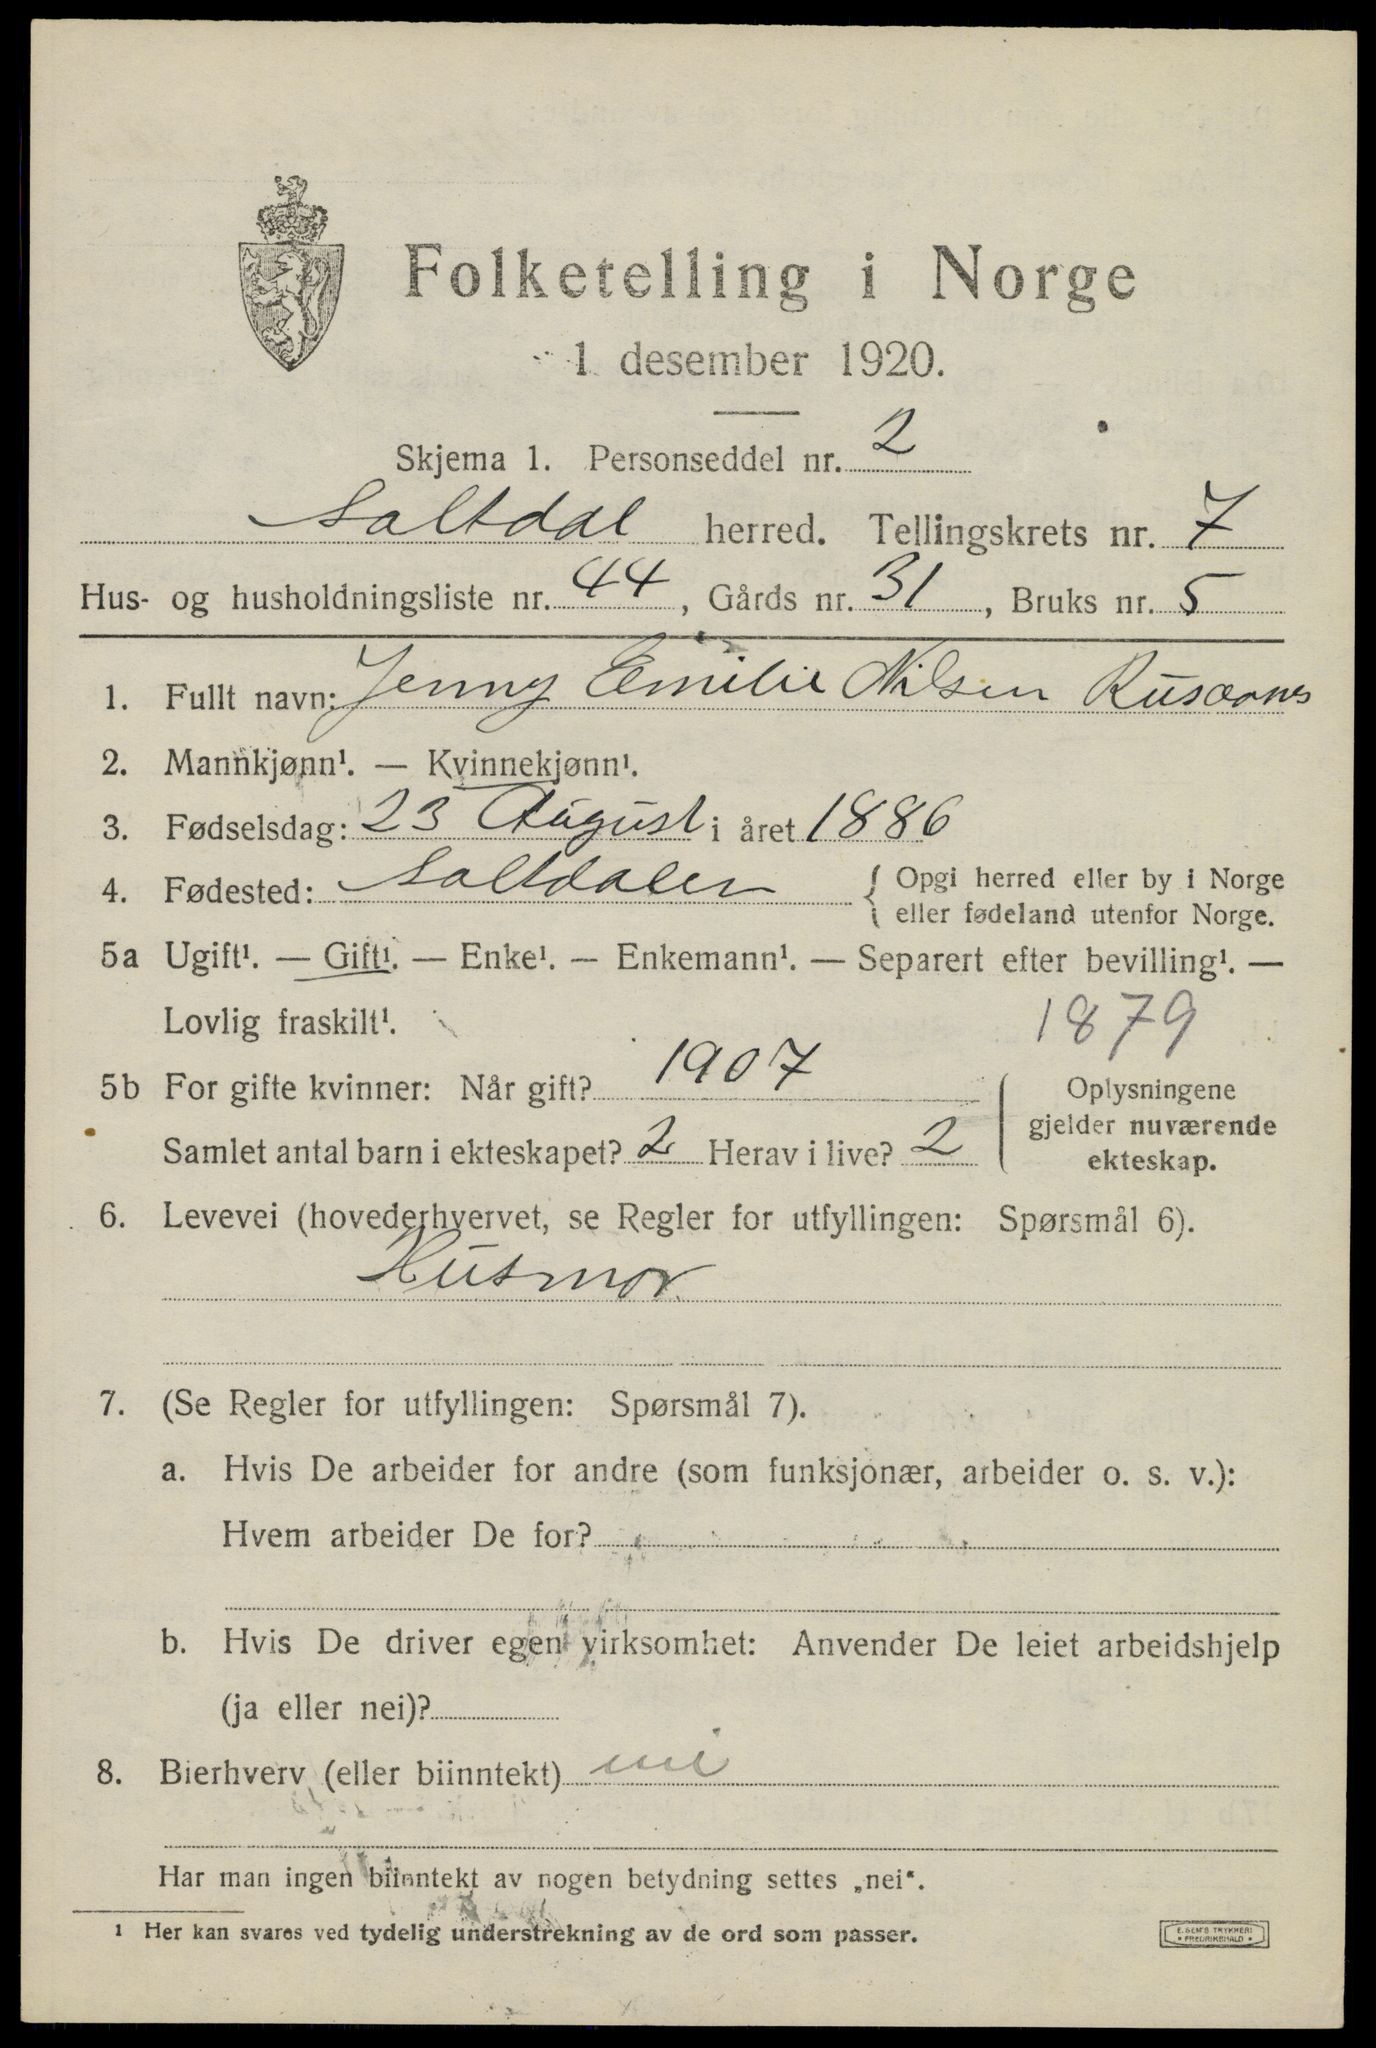 Folketelling i Norge
1 desember 1920.
Skjema 1. Personseddel nr. 2
Saltdal herred. Tellingskrets nr. 7
Hus- og husholdningsliste nr. 44, Gårds nr. 31, Bruks nr. 5
1. Fullt navn: Jenny Emilie Nilsen Rusaanes
2. Mannkjønn¹. — Kvinnekjønn¹.
3. Fødselsdag: 23 August i året 1886
4. Fødested: Saltdalen { Opgi herred eller by i Norge
eller fødeland utenfor Norge.
5a Ugift¹. — Gift¹. — Enke¹. — Enkemann¹. — Separert efter bevilling¹. —
Lovlig fraskilt¹. 1879
5b For gifte kvinner: Når gift? 1907
Samlet antal barn i ekteskapet? 2 Herav i live? 2
Oplysningene
gjelder nuværende
ekteskap.
6. Levevei (hovederhvervet, se Regler for utfyllingen: Spørsmål 6).
Husmor
7. (Se Regler for utfyllingen: Spørsmål 7).
a. Hvis De arbeider for andre (som funksjonær, arbeider o. s. v.):
Hvem arbeider De for?
b. Hvis De driver egen virksomhet: Anvender De leiet arbeidshjelp
(ja eller nei)?
8. Bierhverv (eller biinntekt) nei
Har man ingen biinntekt av nogen betydning settes „nei“.
1 Her kan svares ved tydelig understrekning av de ord som passer.
E. SEM'S TRYKKERI
FREDRIKSHALD